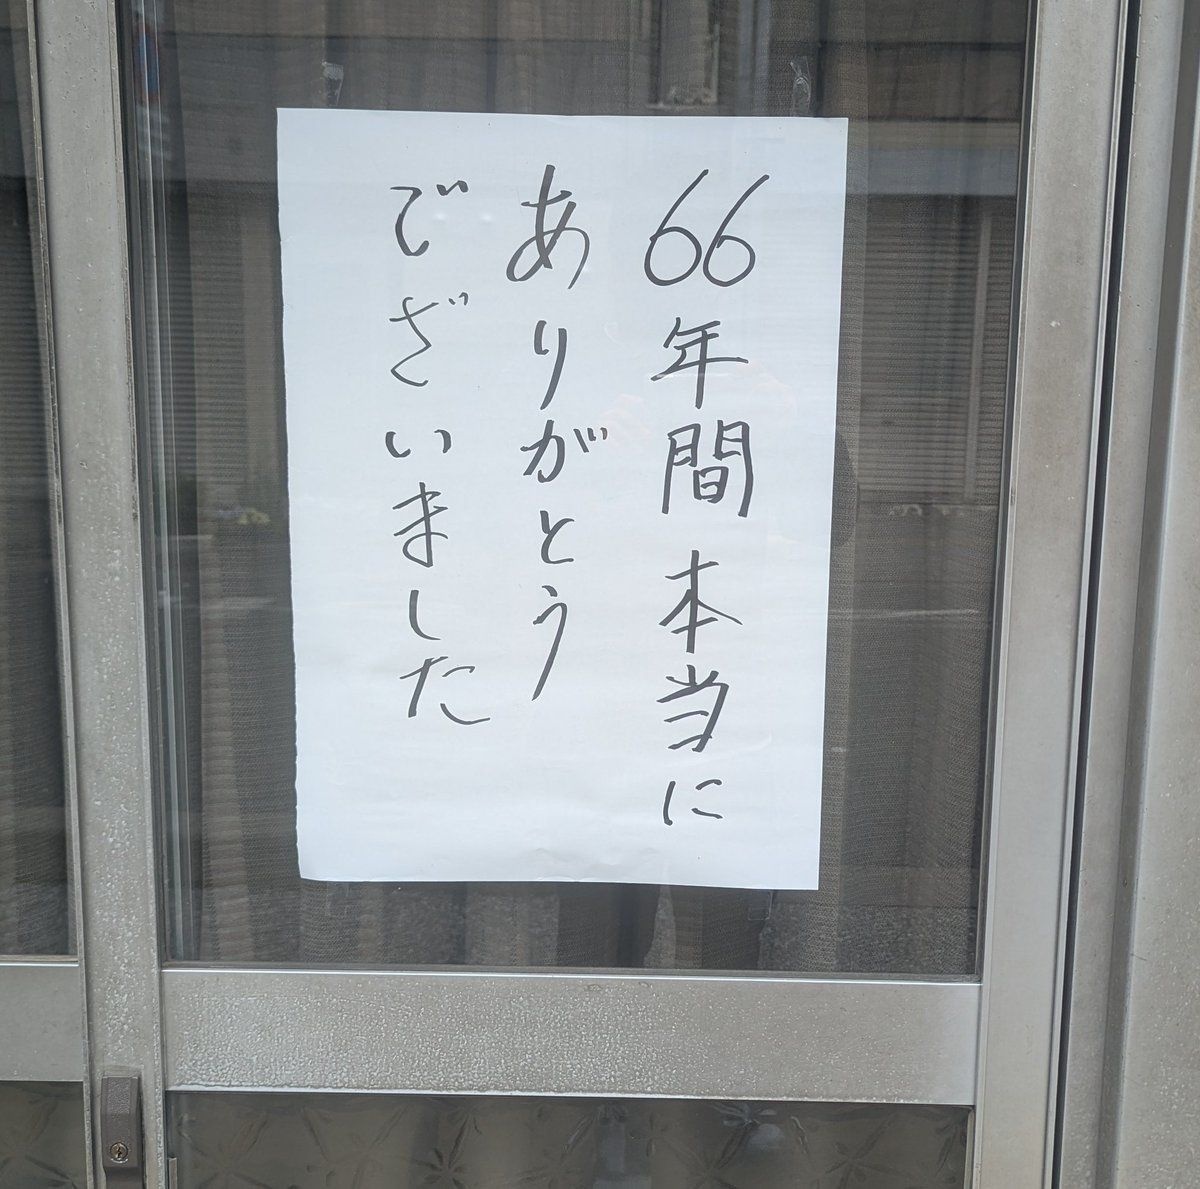 66年間本当に
ありがとう
でざいました